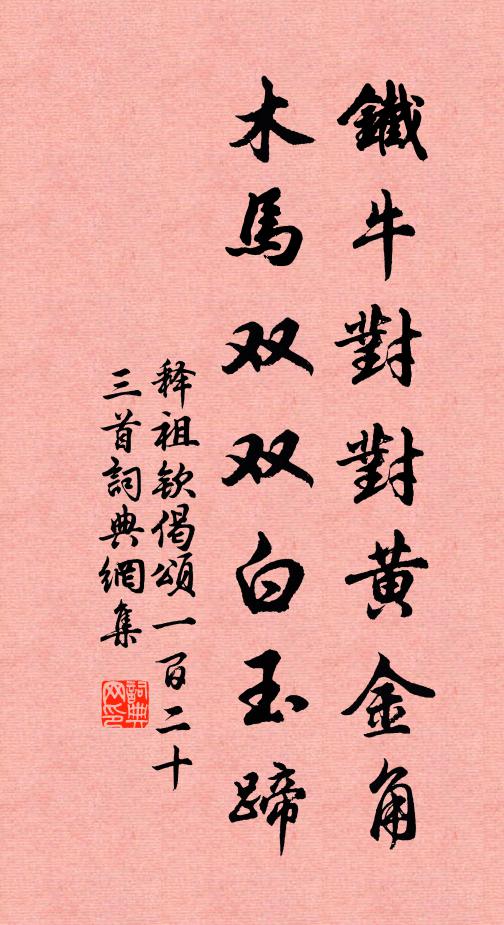 鐵牛對對黃金角
木馬双双白玉蹄
释祖钦偈頌一百二十
三首詞典網集
詞典网印